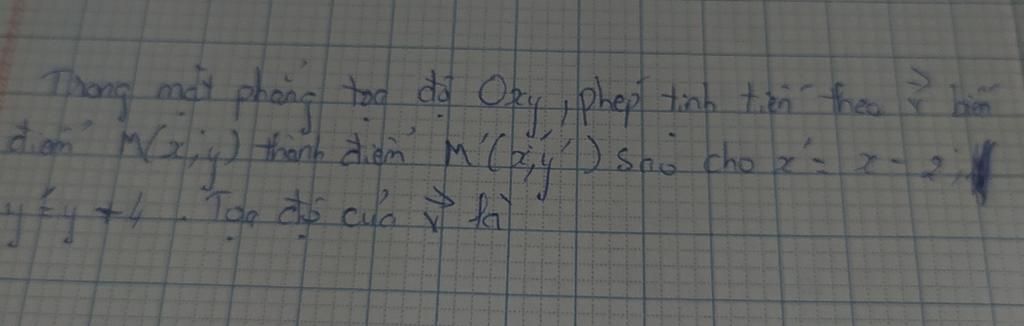 Trong mặt phẳng tọa độ Oxy, phép tịnh tiến theo v⃗ biến
điểm M(x;y) thành điểm M'(x';y') sao cho x' = x - 2;
y' = y + 4. Tọa độ của v⃗ là